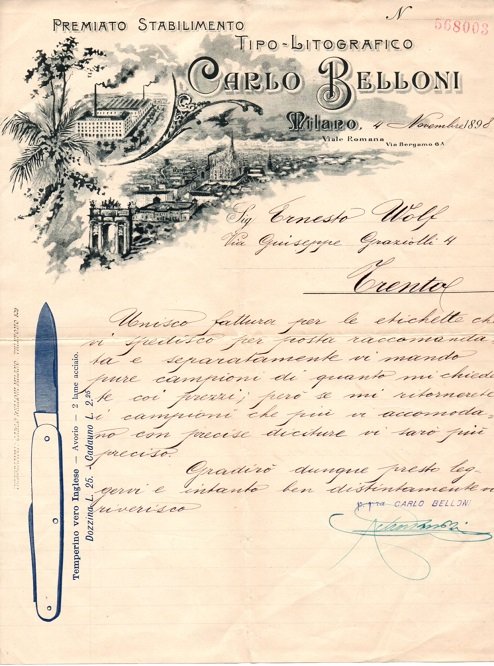 N 568003
PREMIATO STABILIMENTO
TIPO-LITOGRAFICO
CARLO BELLONI
Milano, 4 Novembre 1898
Viale Romana
Via Bergamo 6A
Sig Ernesto Wolf
Via Guiseppe Graziolli 4
Trento
Unisco fattura per le etichette ch
vi spedisco per posta raccomanda
ta e separatamente vi mando
pure campioni di quanto mi chiede
te coi prezzi; però se mi ritornerete
i campioni che più vi accomoda,
no con precise diciture vi sarò più
preciso.
Gradirò dunque presto leg-
gervi e intanto ben distintamente
riverisco
p. pra CARLO BELLONI
Temperino vero Inglese — Avorio — 2 lame acciaio.
Dozzina L. 25. - Cadauno L. 2,25